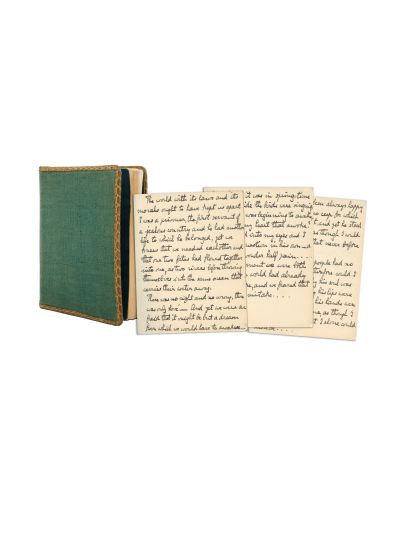 The world with its laws and its
morals ought to have kept us apart
I was a princess, the first servant of
a jealous country and he had another
life to which he belonged, yet we
knew that we needed eachother and
that our two fates had flowed together
into one, as two rivers before throwing
themselves into the same ocean that
carries their water away.
There was no night and no wrong, there
was only love — And yet we were a
fraid that it might be but a dream
from which we would have to awaken...
it was in springtime
the birds were singing
was beginning to awake
my heart that awoke
into my eyes and I
emotion in his sound
under half pain....
moment we were both
world had already
, and we feared that
mistake....
been always happy
to weep, for which
and yet he stood
as though I would
that never before
people had no
therefore could I
his soul was
his lips were
his hands were
me, as though I
I alone could